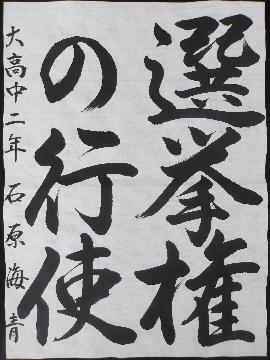 選挙権
の行使
大高中二年 石原海青